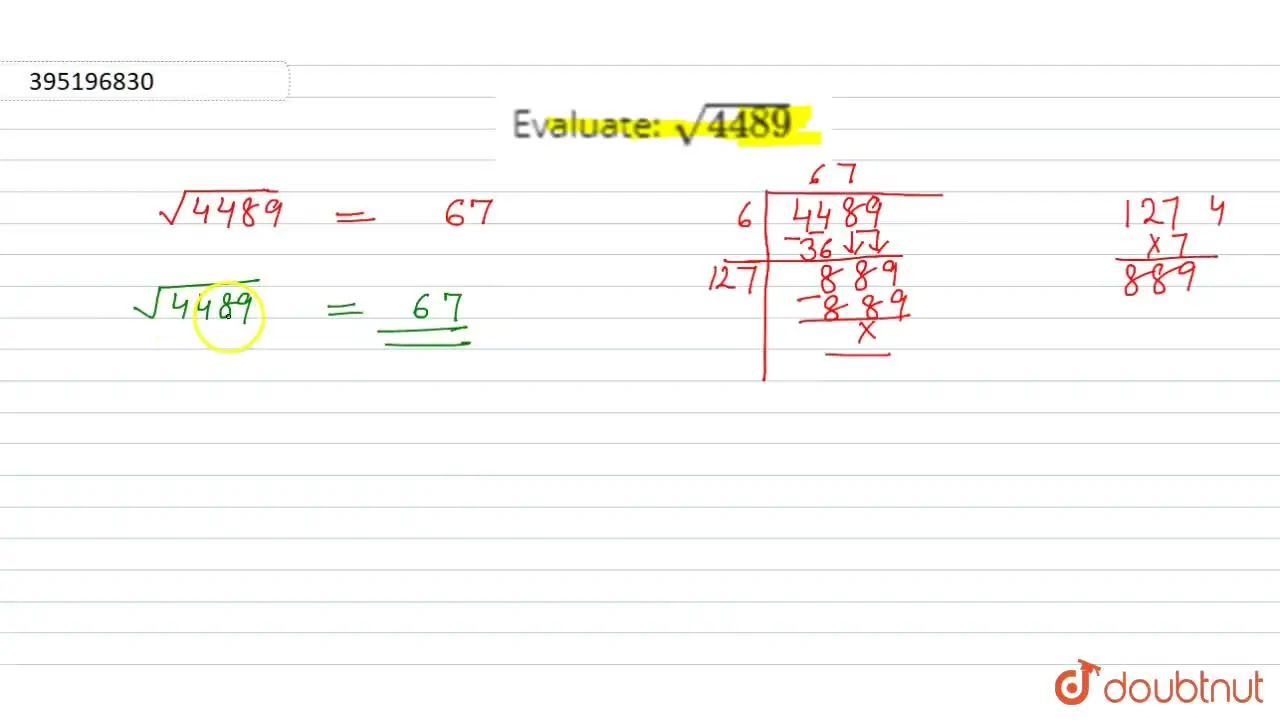 395196830
Evaluate: √4489
√4489 = 67
√4489 = 67
67
6 4489
-36
127 889
-889
x
127 4
x7
889
doubtnut